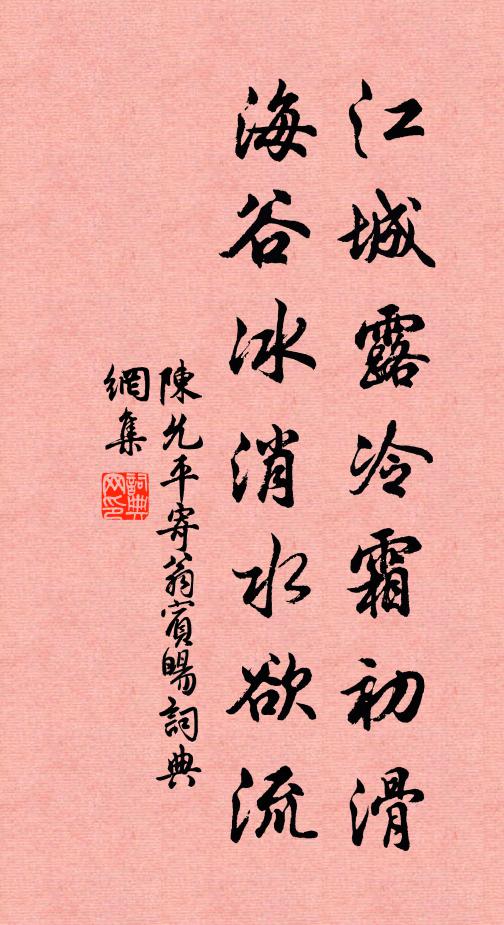 江城露冷霜初滑
海谷冰消水欲流
陳允平寄翁賓暘詞典
網集
詞典
网印